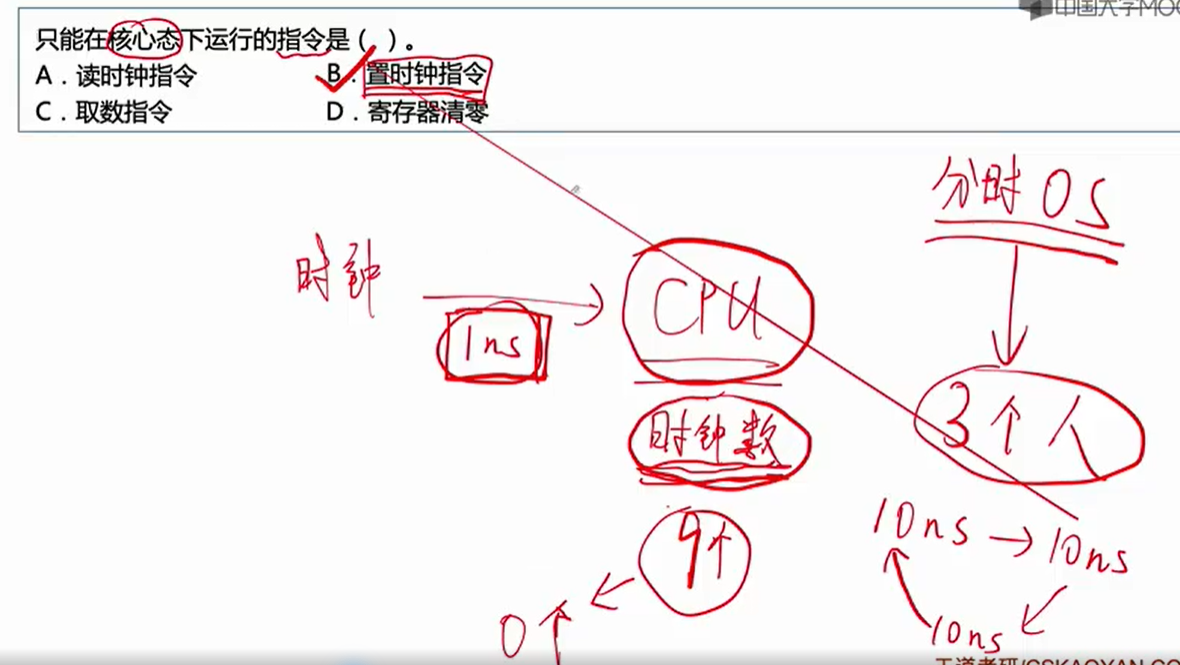 中国大学MOO
只能在核心态下运行的指令是（ ）。
A．读时钟指令 B．置时钟指令
C．取数指令 D．寄存器清零
分时OS
时钟
CPU
1ns
3个人
时钟数
9个
10ns → 10ns
0↑
10ns
王道考研/CSKAOYAN.CO